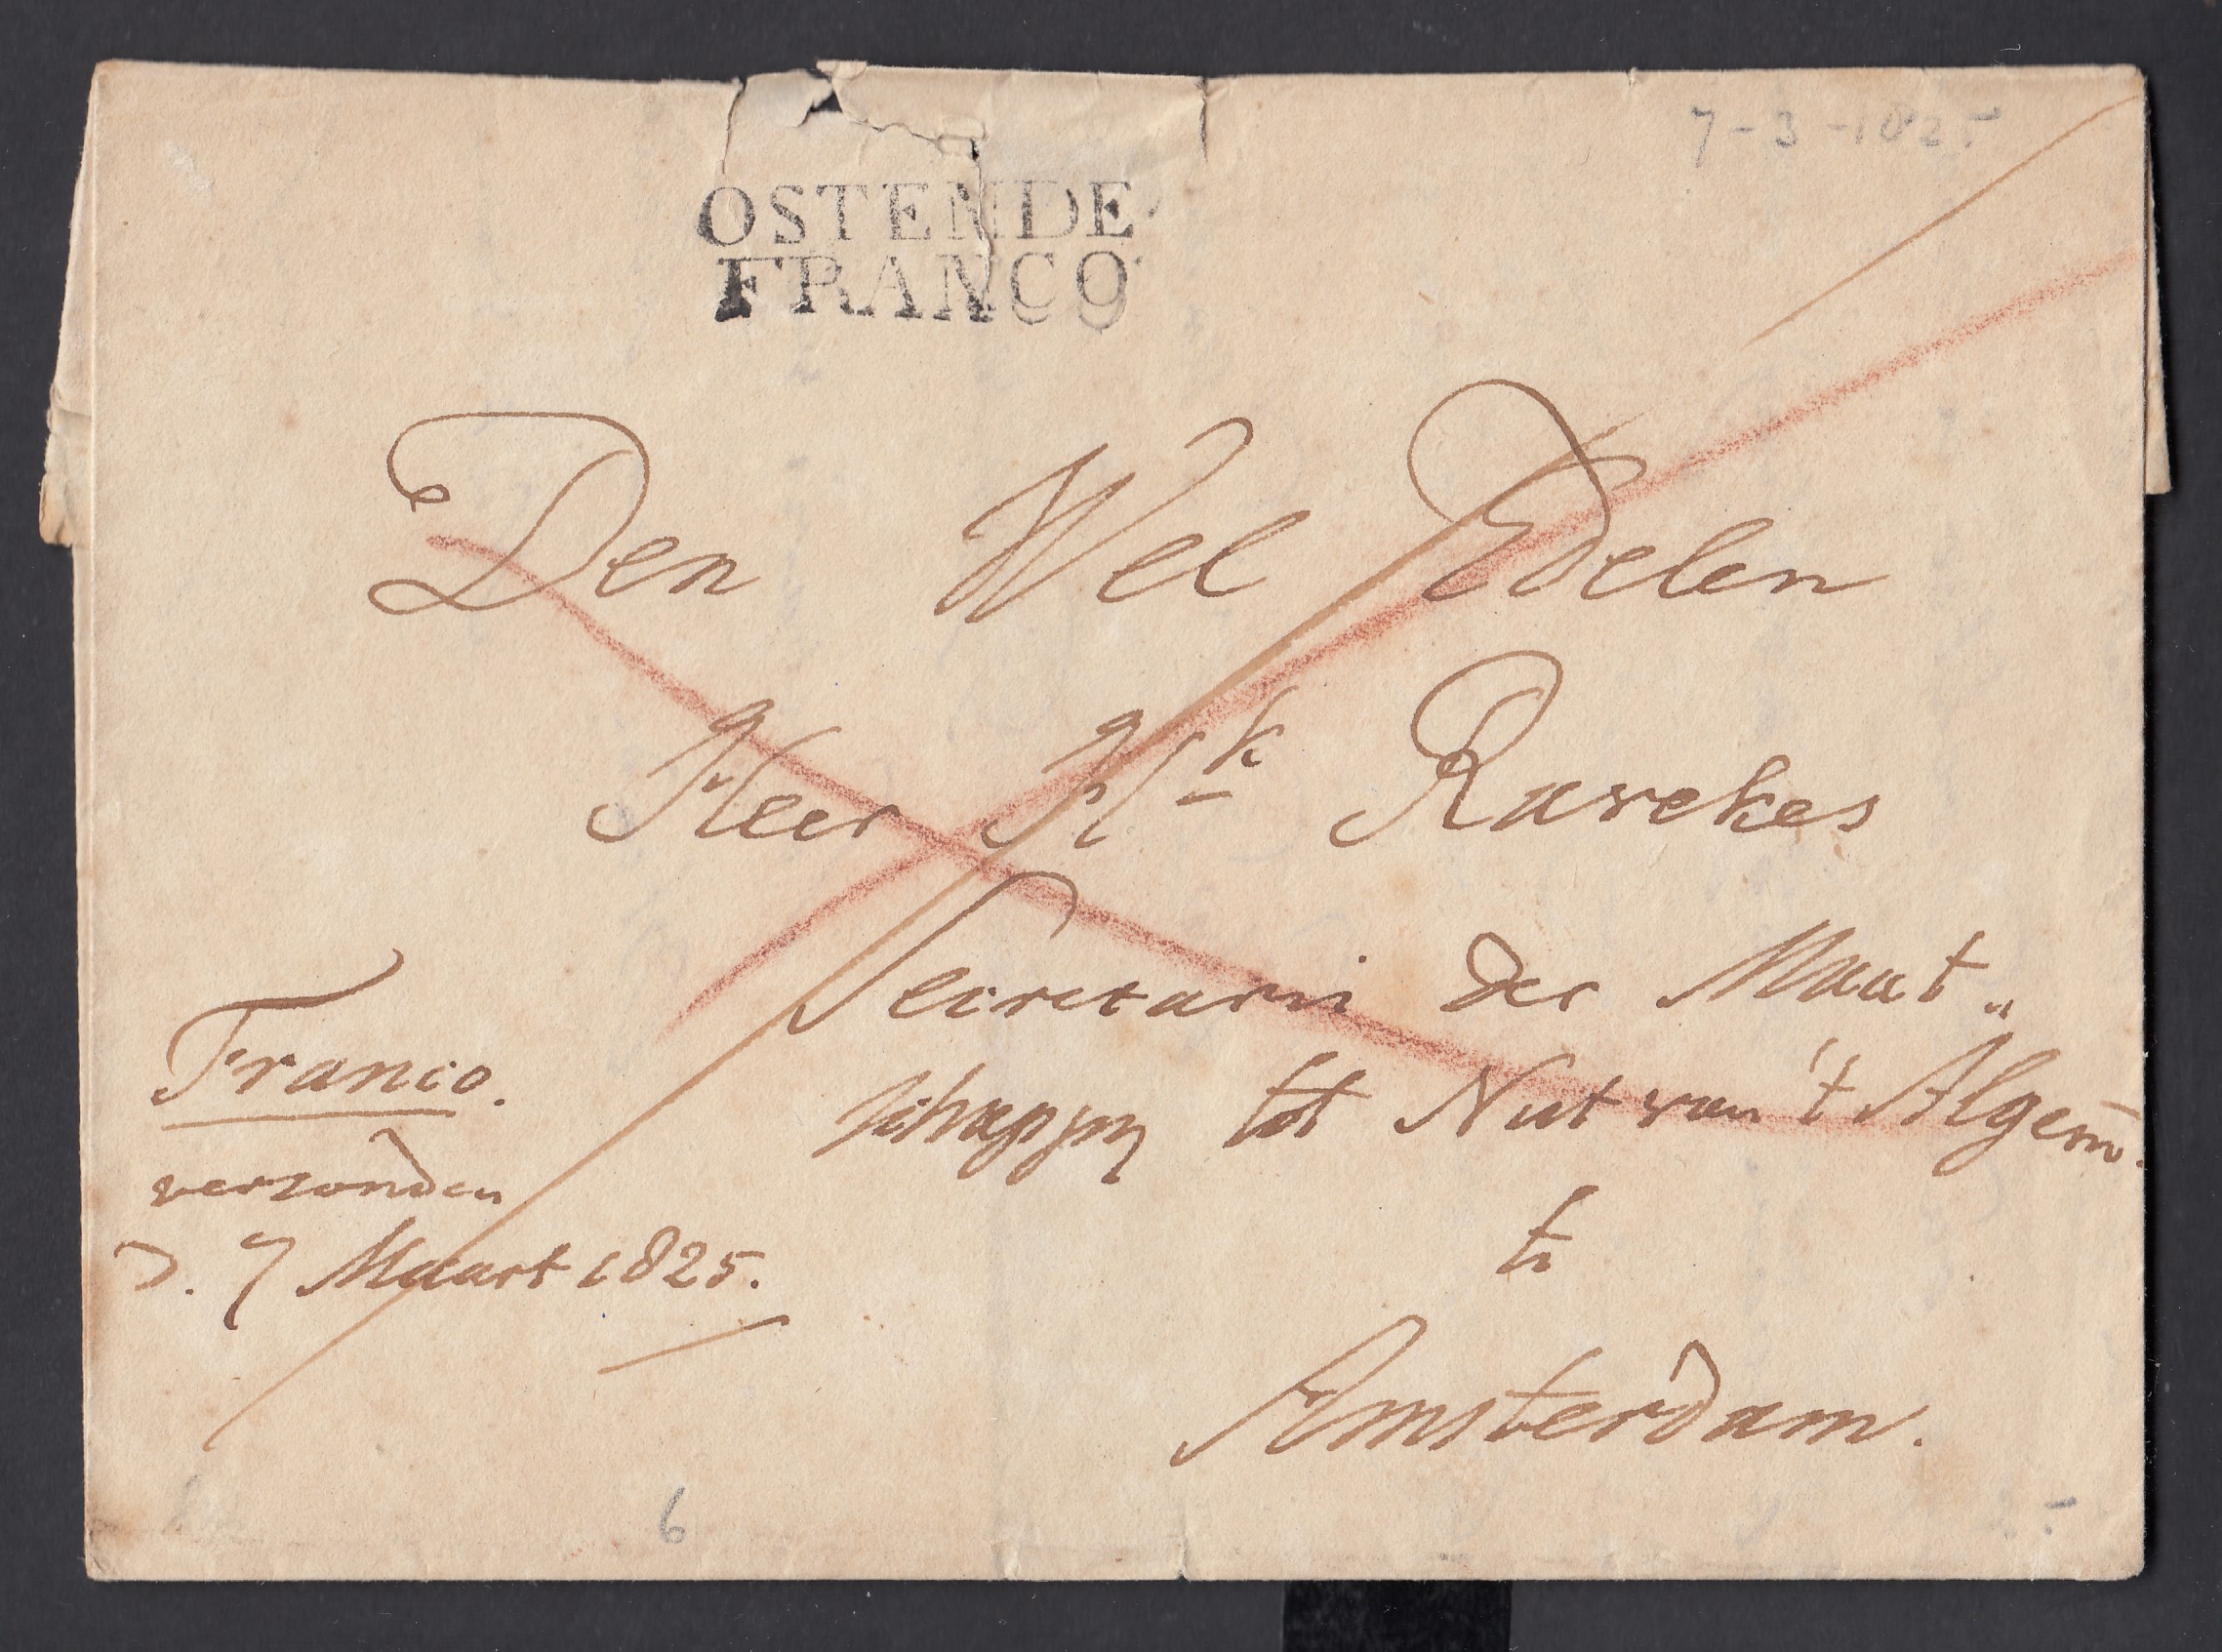 7-3-1825
OSTENDE
FRANCO
Den Wel Edelen
Heer Hk Ravekes
Secretaris der Maat„
schappy tot Nut van 't Algem.
te
Amsterdam.
Franco.
verzonden
d. 7 Maart 1825.
6